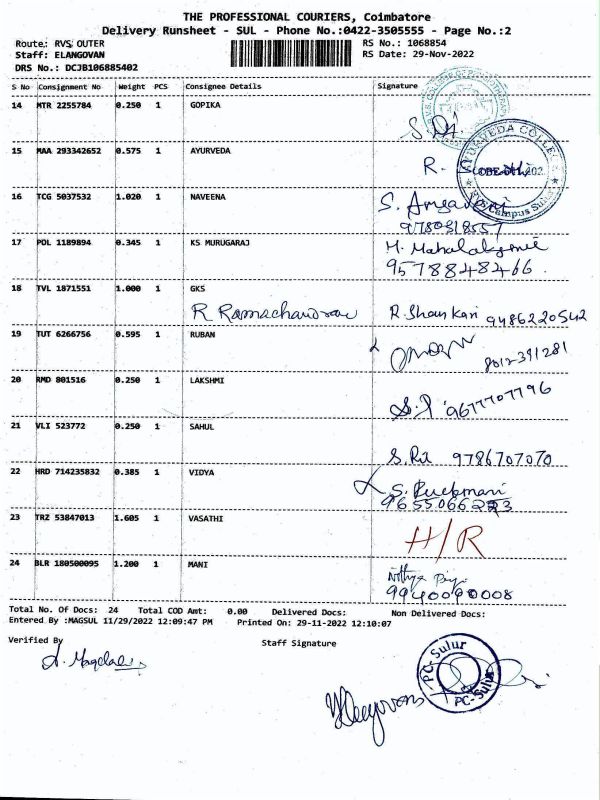 THE PROFESSIONAL COURIERS, Coimbatore
Delivery Runsheet - SUL - Phone No.:0422-3505555 - Page No.:2
Route: RVS OUTER RS No.: 1068854
Staff: ELANGOVAN RS Date: 29-Nov-2022
DRS No.: DCJB106885402
S No Consignment No Weight PCS Consignee Details Signature
14 MTR 2255784 0.250 1 GOPIKA
15 MAA 293342652 0.575 1 AYURVEDA R.
AYURVEDA COLLEGE
RVS Campus Sulur
16 TCG 5037532 1.020 1 NAVEENA S.
17 POL 1189894 0.345 1 KS MURUGARAJ M. Mahalakshmi
9578848466.
18 TVL 1871551 1.000 1 GKS
R Ramachandran R. Shankari 9486220542
19 TUT 6266756 0.595 1 RUBAN 8012-391281
20 RMD 801516 0.250 1 LAKSHMI 9677707796
21 VLI 523772 0.250 1 SAHUL
9786707070
22 HRD 714235832 0.385 1 VIDYA S. Rukmani
23 TRZ 53847013 1.605 1 VASATHI H/R
24 BLR 180500095 1.200 1 MANI Nithya
9940090008
Total No. Of Docs: 24 Total COD Amt: 0.00 Delivered Docs: Non Delivered Docs:
Entered By :MAGSUL 11/29/2022 12:09:47 PM Printed On: 29-11-2022 12:10:07
Verified By Staff Signature
PC-Sulur
PC-Sulur